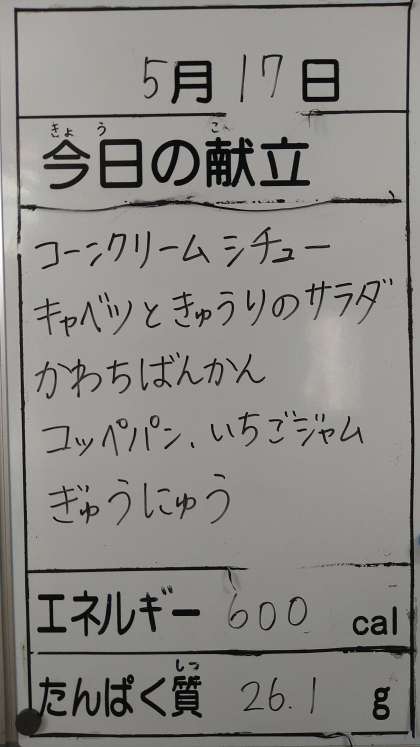 5月17日
きょう こん
今日の献立
コーンクリームシチュー
キャベツときゅうりのサラダ
かわちばんかん
コッペパン、いちごジャム
ぎゅうにゅう
エネルギー 600 cal
しつ
たんぱく質 26.1 g